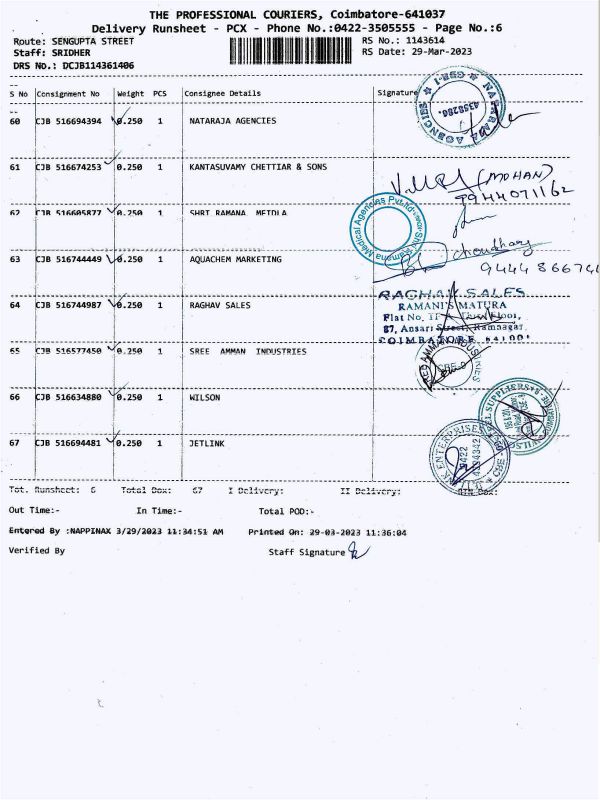 THE PROFESSIONAL COURIERS, Coimbatore-641037
Delivery Runsheet - PCX - Phone No.:0422-3505555 - Page No.:6
Route: SENGUPTA STREET RS No.: 1143614
Staff: SRIDHER RS Date: 29-Mar-2023
DRS No.: DCJB114361406
S No Consignment No Weight PCS Consignee Details Signature
60 CJB 516694394 0.250 1 NATARAJA AGENCIES
61 CJB 516674253 0.250 1 KANTASUVAMY CHETTIAR & SONS
(MOHAN)
9944071162
62 CJB 516605877 0.250 1 SHRI RAMANA MEIDLA
Medical Agencies Pvt.Ltd
63 CJB 516744449 0.250 1 AQUACHEM MARKETING
choudhary
64 CJB 516744987 0.250 1 RAGHAV SALES
RAGHAV SALES
RAMANI'S MATURA
Flat No.
87, Ansari Street, Ramnagar
COIMBATORE
65 CJB 516577450 0.250 1 SREE AMMAN INDUSTRIES
66 CJB 516634880 0.250 1 WILSON
67 CJB 516694481 0.250 1 JETLINK
Tot. Runsheet: 6 Total Dox: 67 I Delivery: II Delivery: RTN Dox:
Out Time:- In Time:- Total POD:-
Entered By :NAPPINAX 3/29/2023 11:34:51 AM Printed On: 29-03-2023 11:36:04
Verified By Staff Signature